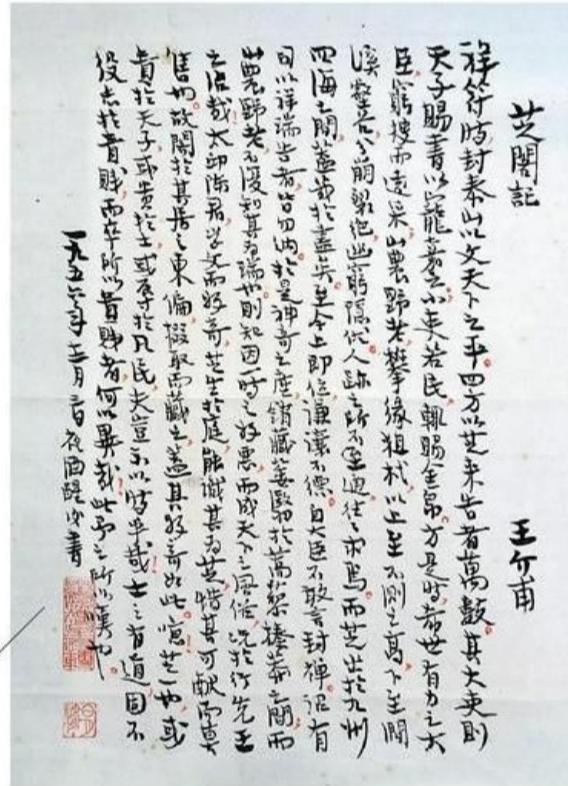 芝閣記
王介甫
祥符時封泰山以文天下之平四方以芝來告者萬數其大吏則
天子賜書以寵嘉之小吏若民輒賜金帛方是時希世有力之大
臣窮搜而遠采山農野老攀緣狙杙以上至不測之高下至澗
溪壑谷分崩裂絕幽窮隱伏人跡之所不至往往求焉而芝出於九州
四海之間蓋幾於盡矣至今上即位謙讓不德自大臣不敢言封禪詔有
司以祥瑞告者皆勿納於是神奇之產銷藏委翳於蒿藜榛莽之間而
山農野老不復知其為瑞也則知因一時之好惡而成天下之風俗況於行先王
之治哉太邱陳君學文而好奇芝生於庭能識其為芝惜其可獻而莫
售也故閣於其居之東偏掇取而藏之蓋其好奇如此噫芝一也或
貴於天子或貴於士或辱於凡民夫豈不以時乎哉士之有道固不
役志於貴賤而卒所以貴賤者何以異哉此予之所以嘆也
一九五六年十二月一日夜酒醒後書